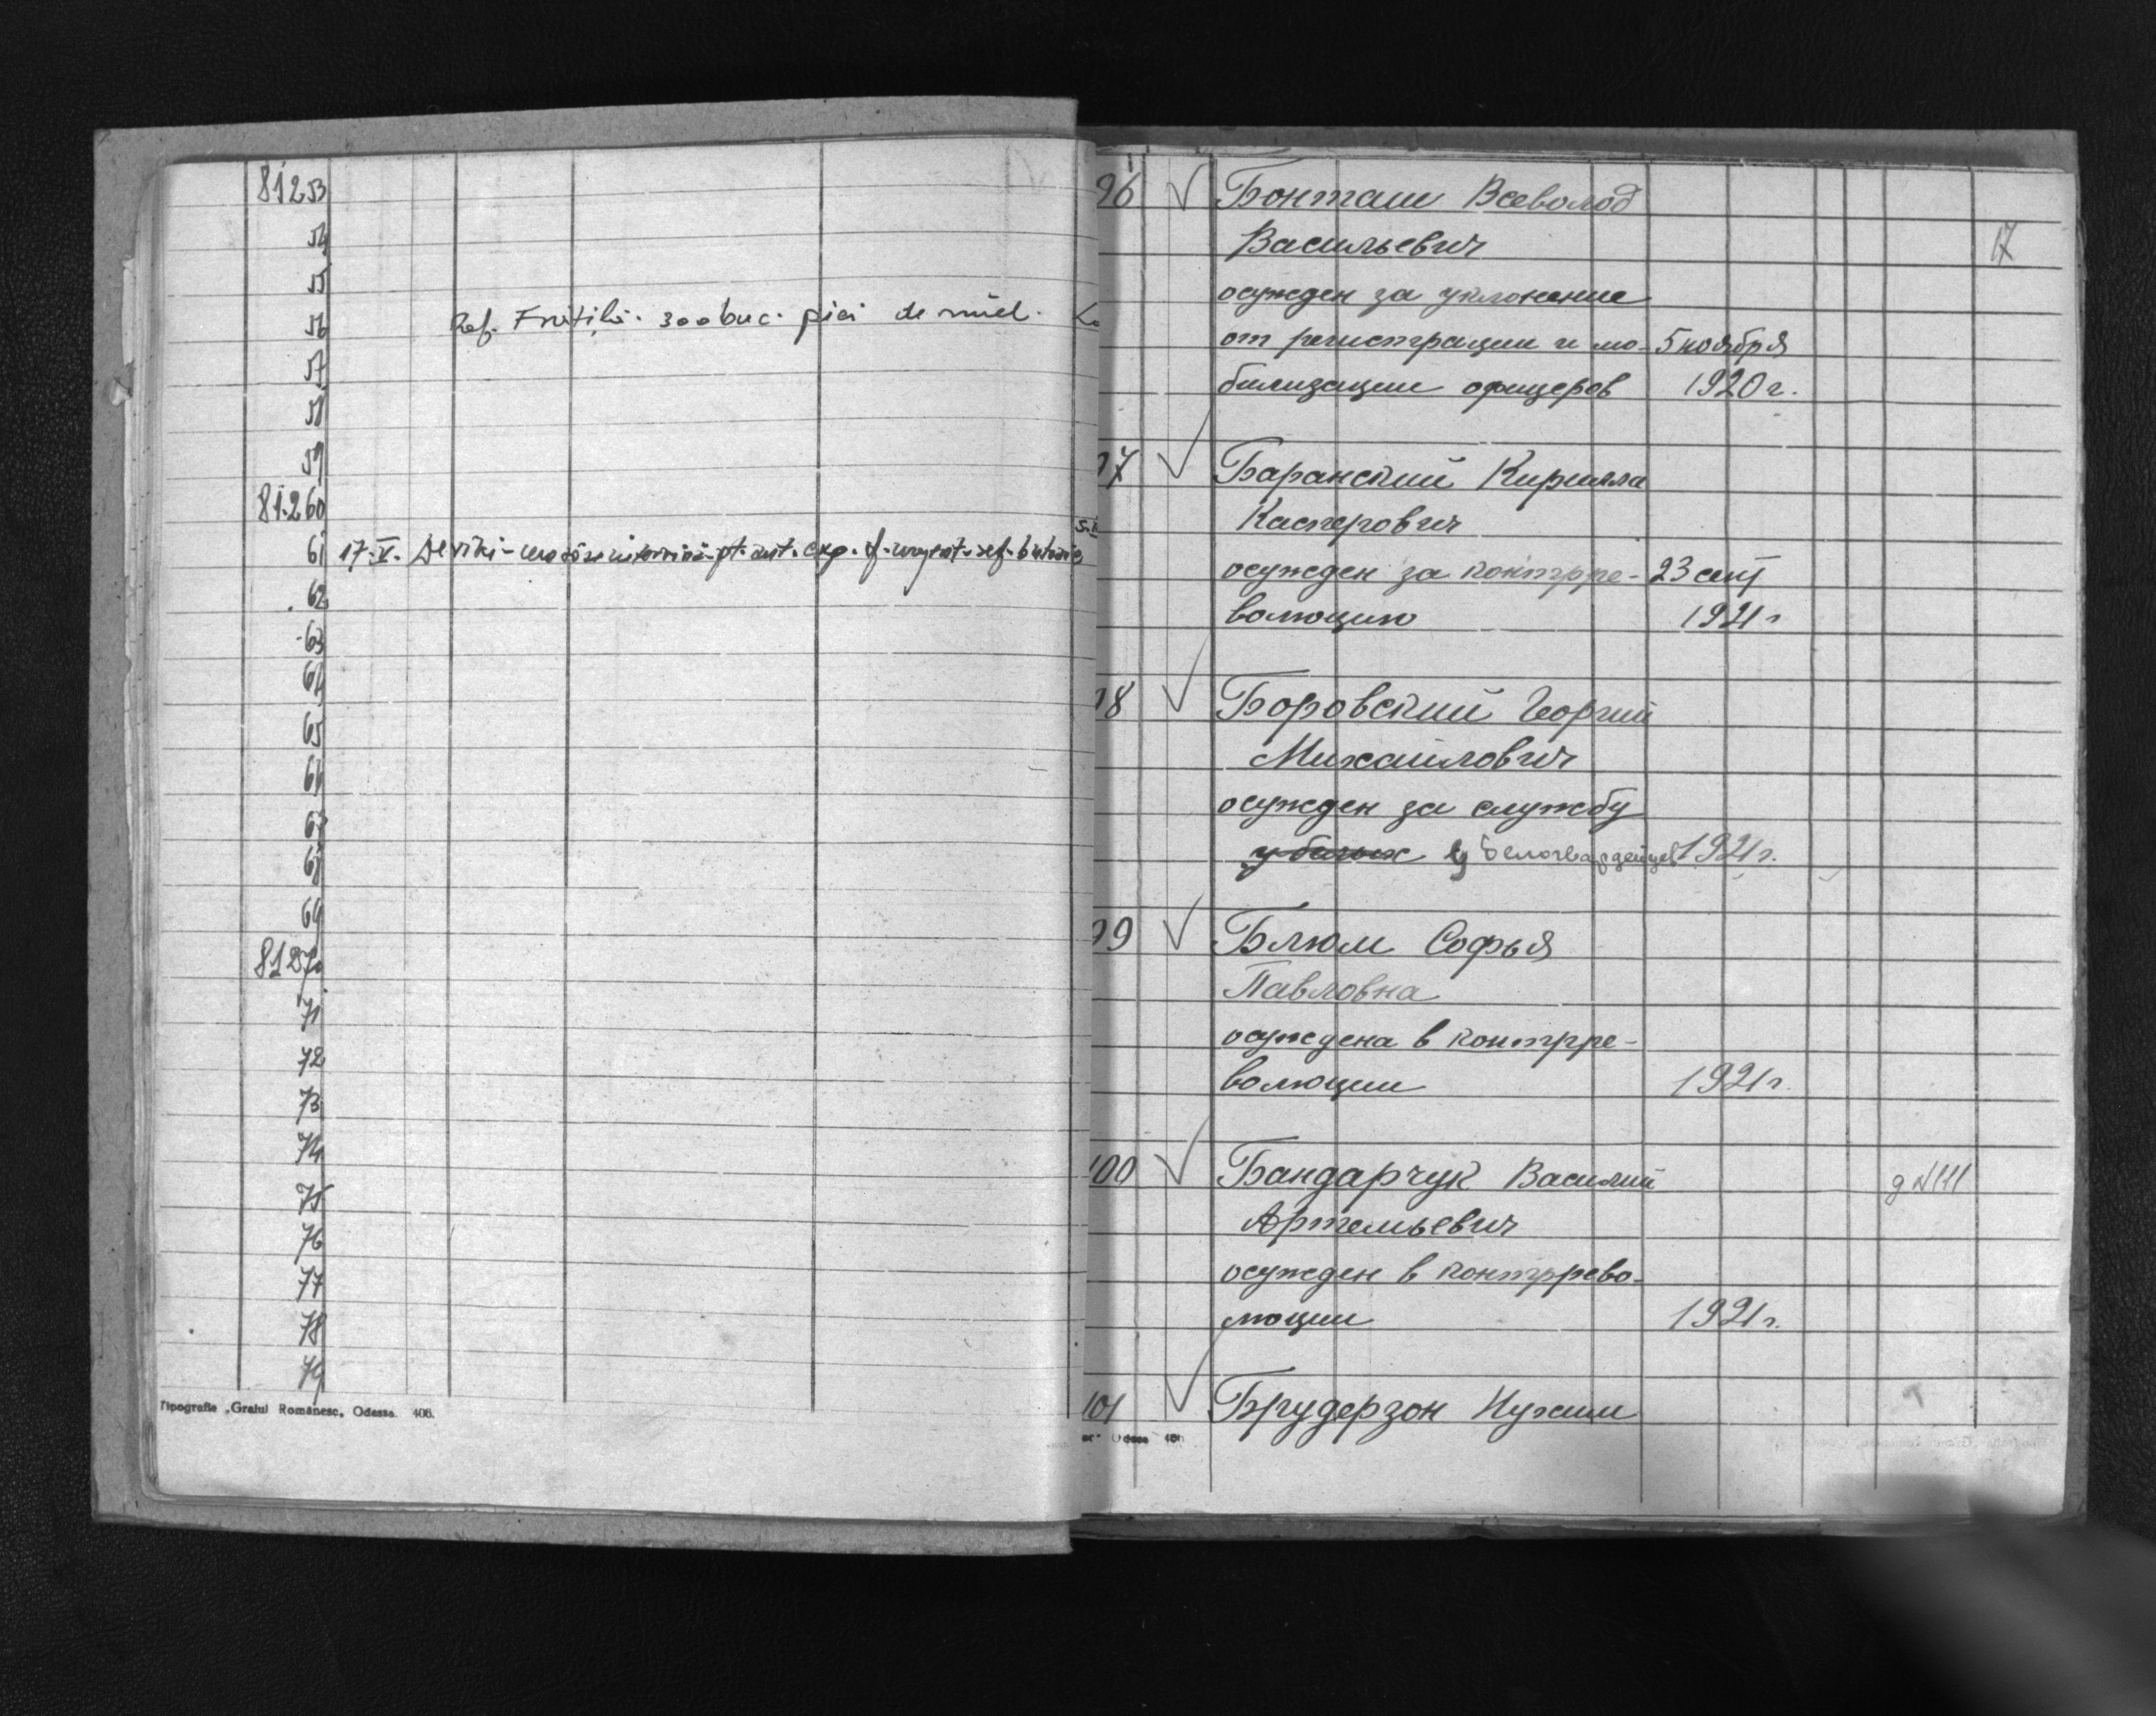 81253
54
55
56 Ref. Frățilă. 300 buc. piei de miel.
57
58
59
81.260
61 17.V.
62
63
64
65
66
67
68
69
81270
71
72
73
74
75
76
77
78
79
Tipografie „Graiul Românesc„ Odessa. 406.
17
96 Бонташ Всеволод
Васильевич
осужден за уклонение
от регистрации и мо- 5 ноября
билизации офицеров 1920 г.
97 Баранский Кирилла
Касперович
осужден за контрре- 23 сент
волюцию 1921 г
98 Боровский Георгий
Михайлович
осужден за службу
у белых у белогвардейцев 1921 г.
99 Блюм Софья
Павловна
осуждена в контрре-
волюции 1921 г.
100 Бандарчук Василий
Артемьевич
осужден в контррево-
люции 1921 г.
101 Брудерзон Нухим
Odessa 406